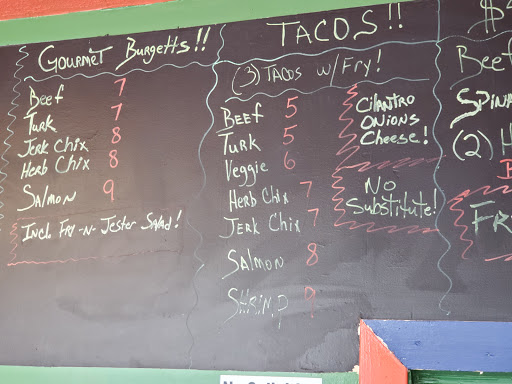 GOURMET Burgetts!!
Beef 7
Turk 7
Jerk Chix 8
Herb Chix 8
Salmon 9
Incl. Fry -N- Jester Salad!
TACOS!!
(3) TACOS w/ Fry!
BEEF 5
Turk 5
Veggie 6
Herb Chix 7
Jerk Chix 7
Salmon 8
SHRIMP
Cilantro
ONIONS
Cheese!
No
Substitute!
Beef
SPINA
(2)
FR